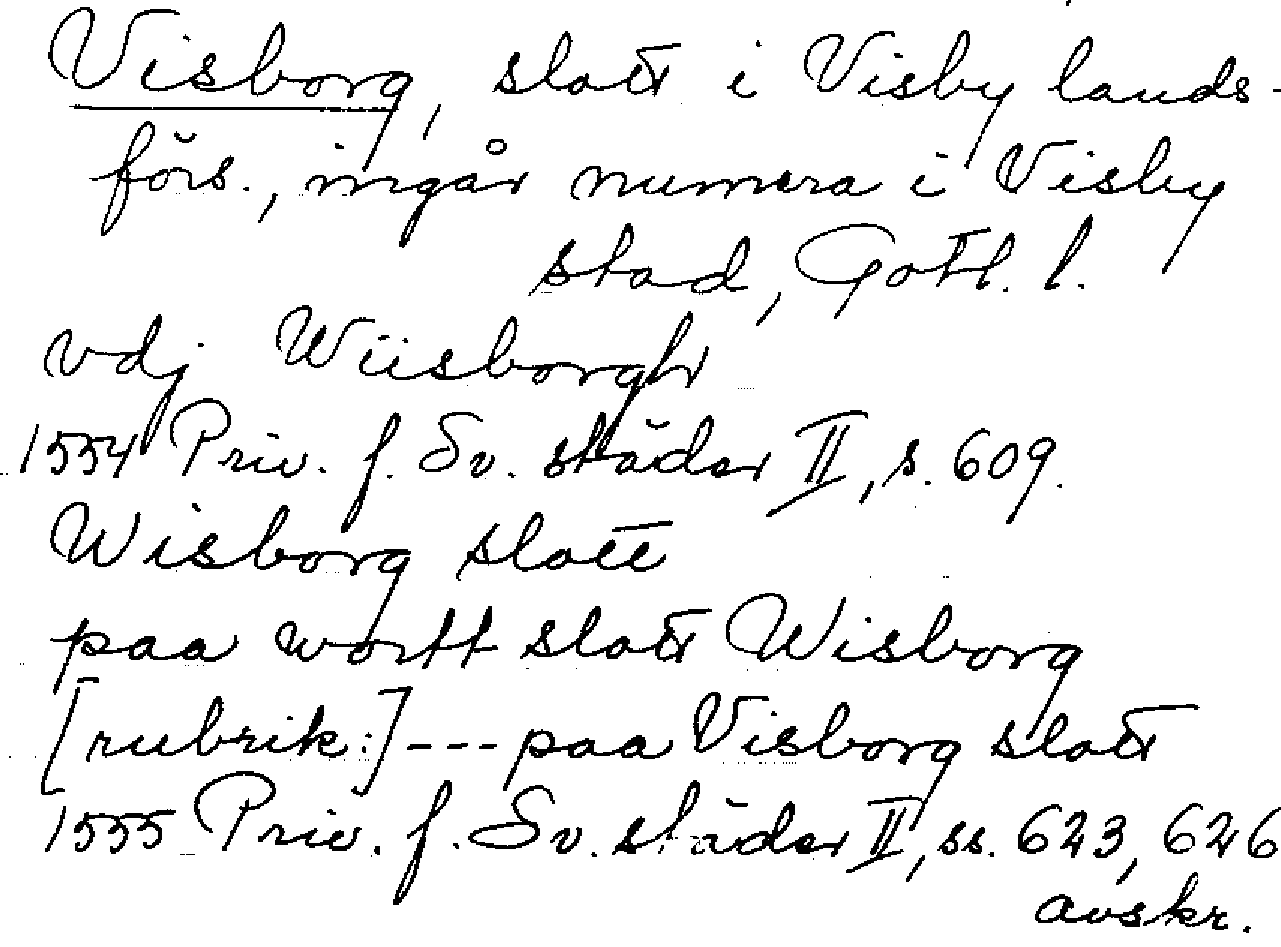 Visborg, slott i Visby lands-
förs., ingår numera i Visby
stad, Gotl. l.
vdj Wiisborgh
1554 Priv. f. Sv. städer II, s. 609.
Wisborg slott
paa wortt slott Wisborg
[rubrik:] --- paa Visborg slott
1555 Priv. f. Sv. städer II, ss. 623, 626
avskr.